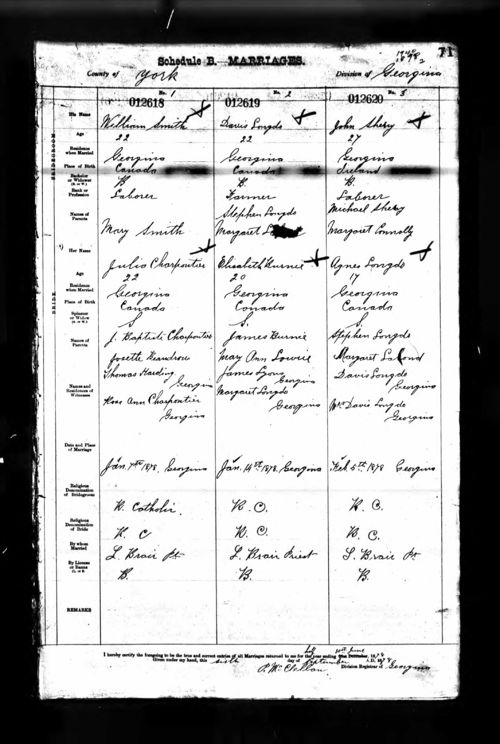 71
1878
Schedule B. MARRIAGES.
County of York Division of Georgina
No. 1 No. 2 No. 3
012618 012619 012620
His Name William Smith Davis Longdo John Shery
Age 22 22 27
Residence when Married Georgina Georgina Georgina
Place of Birth Canada Canada Ireland
Bachelor or Widower (B. or W.) B B. B.
Rank or Profession Laborer Farmer Laborer
Names of Parents Stephen Longdo Michael Shery
Mary Smith Margaret Margaret Connolly
Her Name Julia Charpentier Elisabeth Burnie Agnes Longdo
Age 22 20 17
Residence when Married Georgina Georgina Georgina
Place of Birth Canada Canada Canada
Spinster or Widow (S. or W.) S S. S.
Names of Parents J. Baptiste Charpentier James Burnie Stephen Longdo
Josette May Ann Lowrie Margaret
Names and Residences of Witnesses Thomas Harding Georgina James Lyons Georgina Davis Longdo Georgina
Rose Ann Charpentier Georgina Margaret Longdo Georgina Mrs Davis Longdo Georgina
Date and Place of Marriage Jan. 7th 1878, Georgina Jan. 14th 1878 Georgina Feb. 5th 1878 Georgina
Religious Denomination of Bridegroom R. Catholic. R. C. R. C.
Religious Denomination of Bride R. C R. C. R. C.
By whom Married L. Braie Pt L. Braie Priest L. Braie Pt
By License or Banns (L. or B.) B. B. B.
REMARKS
I hereby certify the foregoing to be the true and correct entries of all Marriages returned to me for the half year ending 30th June 1878
Given under my hand, this sixth day of September A.D. 1878
Division Registrar of Georgina